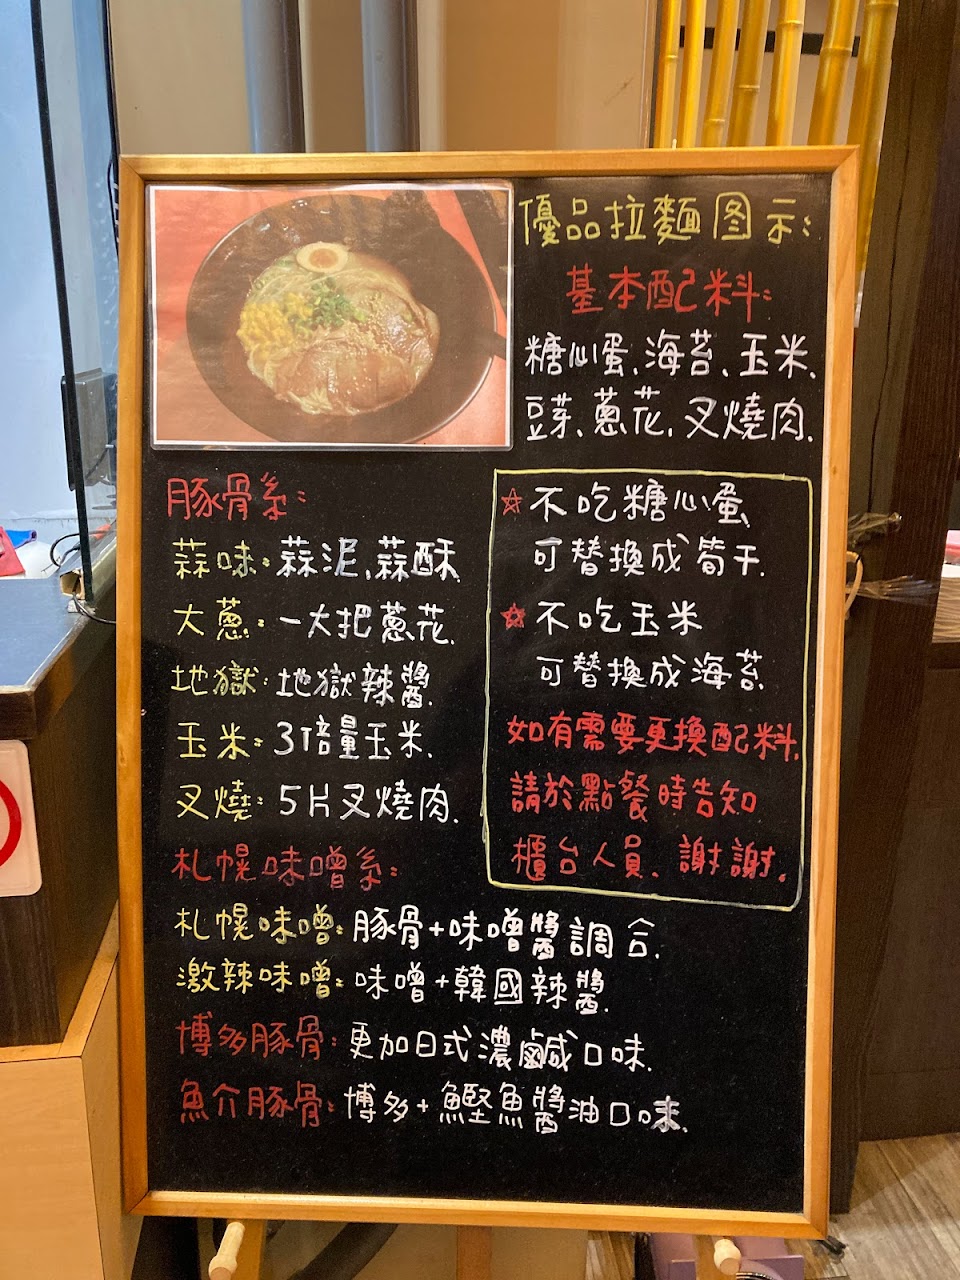 優品拉麵图示:
基本配料:
糖心蛋.海苔.玉米.
豆芽.蔥花.叉燒肉.
豚骨系:
蒜味:蒜泥.蒜酥.
大蔥:一大把蔥花.
地獄:地獄辣醬.
玉米:3倍量玉米.
叉燒:5片叉燒肉.
☆不吃糖心蛋
可替換成筍干.
☆不吃玉米
可替換成海苔
如有需要更換配料.
請於點餐時告知
櫃台人員.謝謝.
札幌味噌系:
札幌味噌:豚骨+味噌醬調合.
激辣味噌:味噌+韓國辣醬.
博多豚骨:更加日式濃鹹口味.
魚介豚骨:博多+鰹魚醬油口味.